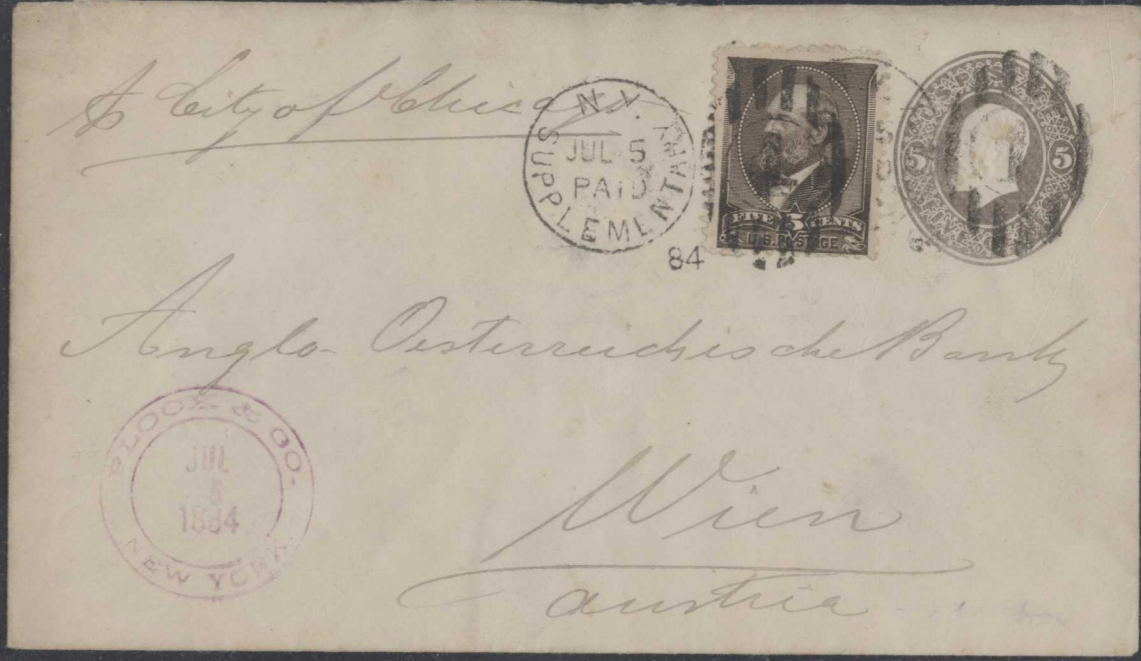 City of Chicago
N.Y.
JUL 5
PAID
SUPPLEMENTARY
84
FIVE 5 CENTS
U.S. POSTAGE
5 5
FIVE
Anglo-Oesterreichische Bank
Wien
Austria
BLOCK & CO.
JUL
5
1884
NEW YORK